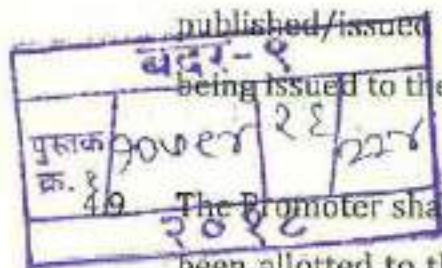 published/issued
बदर - १
being issued to the
पुस्तक
क्र. १
२६
२२४
4.9 The Promoter sha
२०१८
been allotted to th